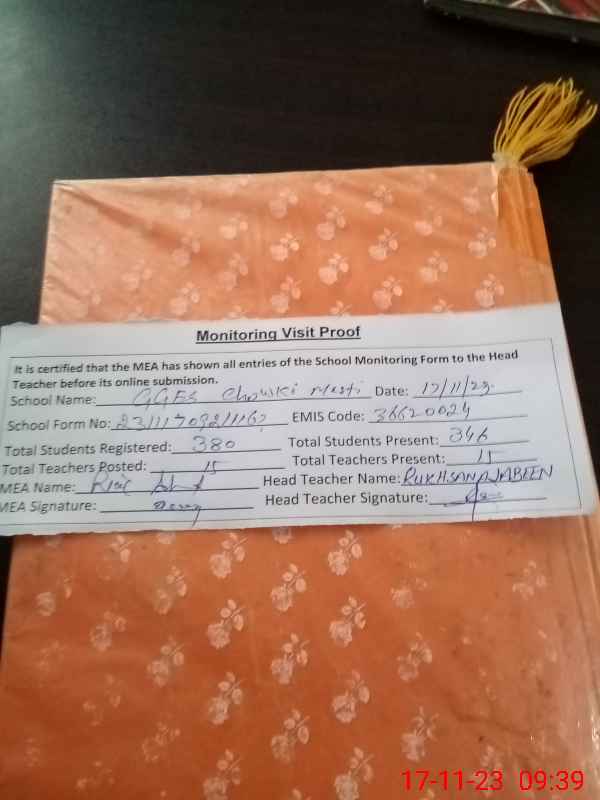 Monitoring Visit Proof
It is certified that the MEA has shown all entries of the School Monitoring Form to the Head
Teacher before its online submission.
School Name: GGES Chowski Masti Date: 17/11/23
School Form No: EMIS Code: 36620024
Total Students Registered: 380 Total Students Present: 346
Total Teachers Posted: 15 Total Teachers Present: 15
MEA Name: Head Teacher Name: RUKHSANA JABEEN
MEA Signature: Head Teacher Signature:
17-11-23 09:39